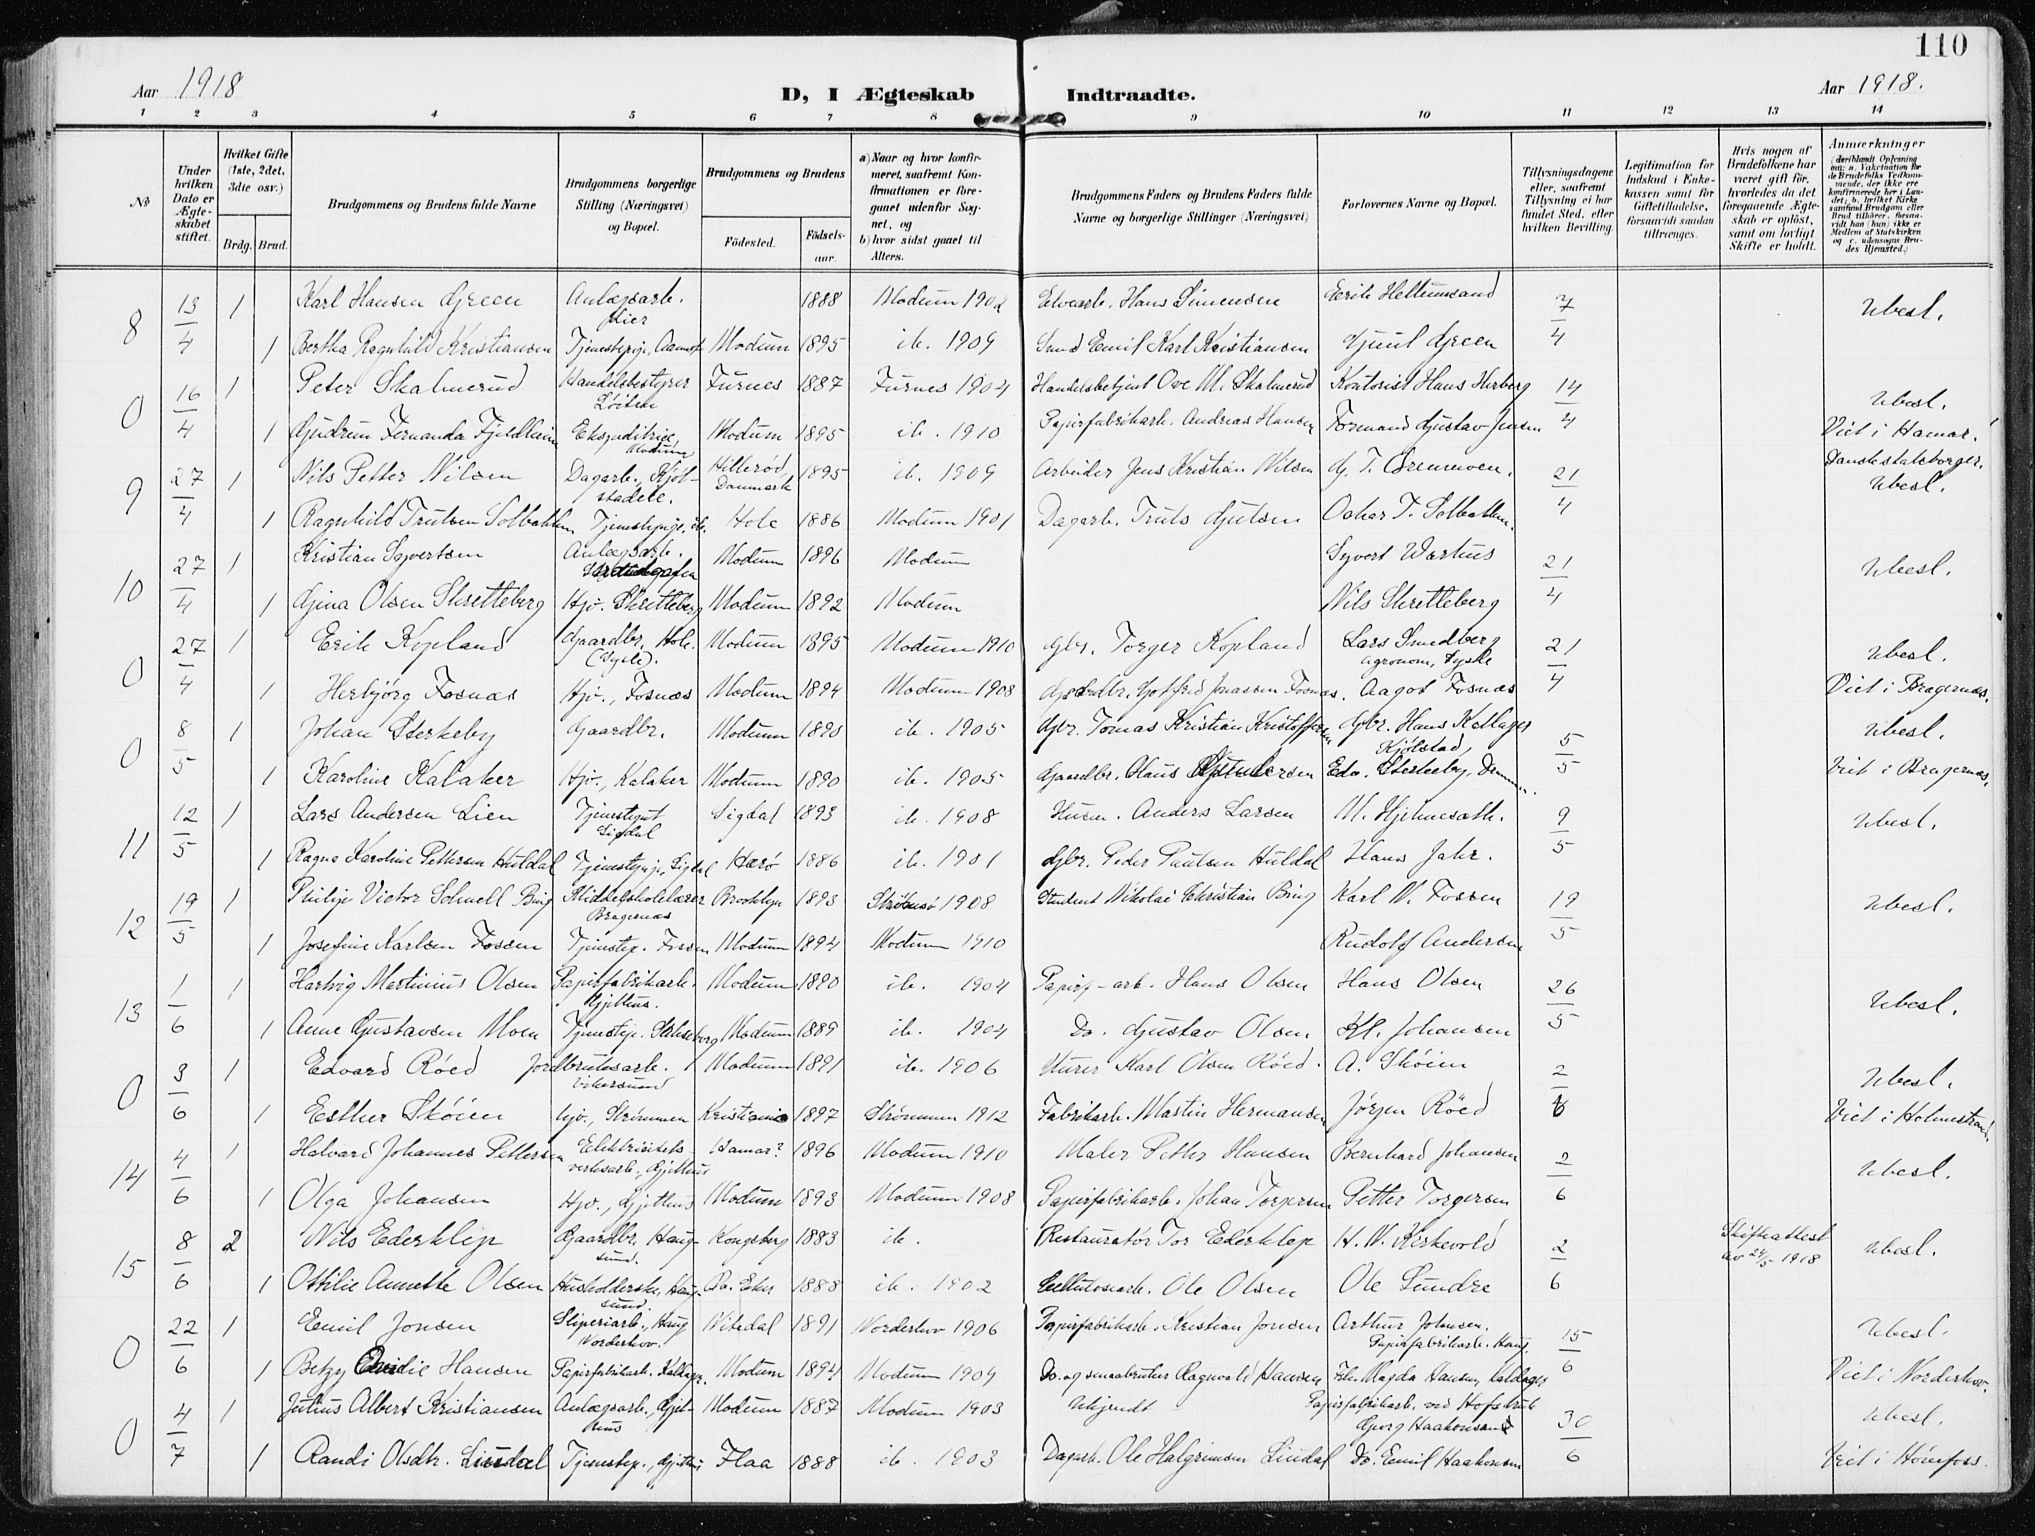 110
Aar 1918
D, I Ægteskab Indtraadte.
Aar 1918.
1 2 3 4 5 6 7 8 9 10 11 12 13 14
No
Under hvilken Dato er Ægteskabet stiftet.
Hvilket Gifte (1ste, 2det, 3die osv.)
Brdg. Brud.
Brudgommens og Brudens fulde Navne
Brudgommens borgerlige Stilling (Næringsvei) og Bopæl.
Brudgommens og Brudens
Fødested. Fødselsaar.
a) Naar og hvor konfirmeret, saafremt Konfirmationen er foregaaet udenfor Sognet, og
b) hvor sidst gaaet til Alters.
Brudgommens Faders og Brudens Faders fulde Navne og borgerlige Stillinger (Næringsvei)
Forlovernes Navne og Bopæl.
Tillysningsdagene eller, saafremt Tillysning ei har fundet Sted, efter hvilken Bevilling.
Legitimation for Indskud i Enkekassen samt for Giftetilladelse, forsaavidt saadan tiltrænges.
Hvis nogen af Brudefolkene har været gift før, hvorledes da det foregaaende Ægteskab er opløst, samt om lovligt Skifte er holdt.
Anmærkninger
(deriblandt Oplysning om: a. Vakcination for de Brudefolks Vedkommende, der ikke ere konfirmerede her i Landet; b. hvilket Kirkesamfund Brudgom eller Brud tilhører, forsaavidt han (hun) ikke er Medlem af Statskirken og c. udensogns Brudes Hjemsted.)
8 13/4 1 Karl Hansen Green Anlægsarb. Lier 1888 Modum 1902 Elvearb. Hans Simensen Erik Hellumsand 7/4 Ubesl.
1 Bertha Ragnhild Kristiansen Tjenestepige, Aamot Modum 1895 ib. 1909 Smed Emil Karl Kristiansen Hjuul Green
0 16/4 1 Peter Skalmerud Handelsbestyrer Løiten Furnes 1887 Furnes 1904 Handelsbetjent Ove M. Skalmerud Kontorist Hans Herberg 14/4 Ubesl.
1 Gudrun Fernanda Fjeldheim Ekspeditrice, Modum Modum 1895 ib. 1910 Papirfabrikarb. Andreas Hansen Formand Gustav Jensen Viet i Hamar.
9 27/4 1 Nils Petter Nilsen Dagarb., Kjølstadele. Hillerød, Danmark 1895 ib. 1909 Arbeider Jens Kristian Nilsen G. T. Bremeven. 21/4 Danskstatsborger. Ubesl.
1 Ragnhild Trulsen Solbakken Tjenestepige, ib. Hole 1886 Modum 1901 Dagarb. Truls Gulsen Oskar T. Solbakken.
10 27/4 1 Kristian Syvertsen Anlægsarb. Modum 1896 Modum Syvert Wartus 21/4 Ubesl.
1 Gina Olsen Skretteberg Hjv. Skretteberg Modum 1892 Modum Nils Skretteberg
0 27/4 1 Erik Kopland Gaardbr., Hole. (Tysle). Modum 1895 Modum 1910 Gbr. Torger Kopland Lars Smedberg agronom, Tysle 21/4 Ubesl.
1 Herbjörg Fosnæs Hjv., Fosnæs Modum 1894 Modum 1908 Gaardbr. Gotfred Jonassen Fosnæs. Aagot Fosnæs Viet i Bragernæs.
0 8/5 1 Johan Sterkeby Gaardbr. Modum 1890 ib. 1905 Gbr. Tomas Kristian Kristoffersen Gbr. Hans Kollager Kjølstad, 5/5 Ubesl.
1 Karoline Kalaker Hjv., Kalaker Modum 1890 ib. 1905 Gaardbr. Olaus Edv. Sterkeby, Drammen. Viet i Bragernæs.
11 12/5 1 Lars Andersen Lien Tjenestegut Sigdal Sigdal 1893 ib. 1908 Husm. Anders Larsen M. Hjelmesæth. 9/5 Ubesl.
1 Ragna Karoline Pettersen Huldal Tjenestepige, Sigdal Herø 1886 ib. 1901 Gbr. Peder Paulsen Huldal Hans Jahr.
12 19/5 1 Philip Victor Schnell Bing Middelskolelærer Bragernæs Brooklyn 1893 Strømsø 1908 Student Nikolai Christian Bing Karl N. Fossen 19/5 Ubesl.
1 Josefine Karlsen Fossen Tjenstep. Fossen Modum 1894 Modum 1910 Rudolf Andersen
13 1/6 1 Hartvig Martinius Olsen Papirfabrikarb. Gjethus. Modum 1890 ib. 1904 Papirf-arb. Hans Olsen Hans Olsen 26/5 Ubesl.
1 Anne Gustavsen Moen Tjenstep. Modum 1889 ib. 1904 Do. Gustav Olsen Kl. Johansen
0 3/6 1 Edvard Röed Jordbruksarb. Vikersund Modum 1891 ib. 1906 Murer Karl Olsen Röed. A. Sköien 2/6 Ubesl.
1 Esther Sköien Hjv., Strømmen Kristiania 1897 Strømmen 1912 Fabrikarb. Martin Hermansen Jörgen Röed Viet i Holmestrand.
14 4/6 1 Halvard Johannes Pettersen Elektrisitetsverksarb., Gjethus Hamar? 1896 Modum 1910 Maler Petter Hansen Bernhard Johansen 2/6 Ubesl.
1 Olga Johansen Hjv., Gjethus Modum 1893 Modum 1908 Papirfabrikarb. Johan Torgersen Petter Torgersen
15 8/6 2 Nils Ederklep Gaardbr., Haugsund. Kongsberg 1883 ib. Restauratør Tor Ederklep H. N. Kirkevold 2/6 Skifteattest av 24/5 1918 Ubesl.
1 Ottilie Annette Olsen Husholderske, Haugsund. Ø. Eker 1888 ib. 1902 Cellulosearb. Ole Olsen Ole Sundre
0 22/6 1 Emil Jonsen Sliperiarb., Haug Norderhov. Nitedal 1891 Norderhov 1906 Papirfabrikarb. Kristian Jonsen Arthur Johnsen, Papirfabrikarb. Haug. 15/6 Ubesl.
1 Betzy Emilie Hansen Papirfabrikarb. Kaldager. Modum 1894 Modum 1909 Do. og smaabruker Ragnvald Hansen Frk. Magda Hansen, Kaldager Viet i Norderhov.
0 4/7 1 Julius Albert Kristiansen Anlægsarb., Gjethus Modum 1887 Modum 1903 Ukjendt Papirfabrikarb. ved Hofsbruk Georg Haakonsen 30/6 Ubesl.
1 Randi Olsdtr. Liudal Tjenestep., Gjethus Flaa 1888 ib. 1903 Dagarb. Ole Halgrimsen Liudal Do. Emil Haakonsen Viet i Hönefoss.